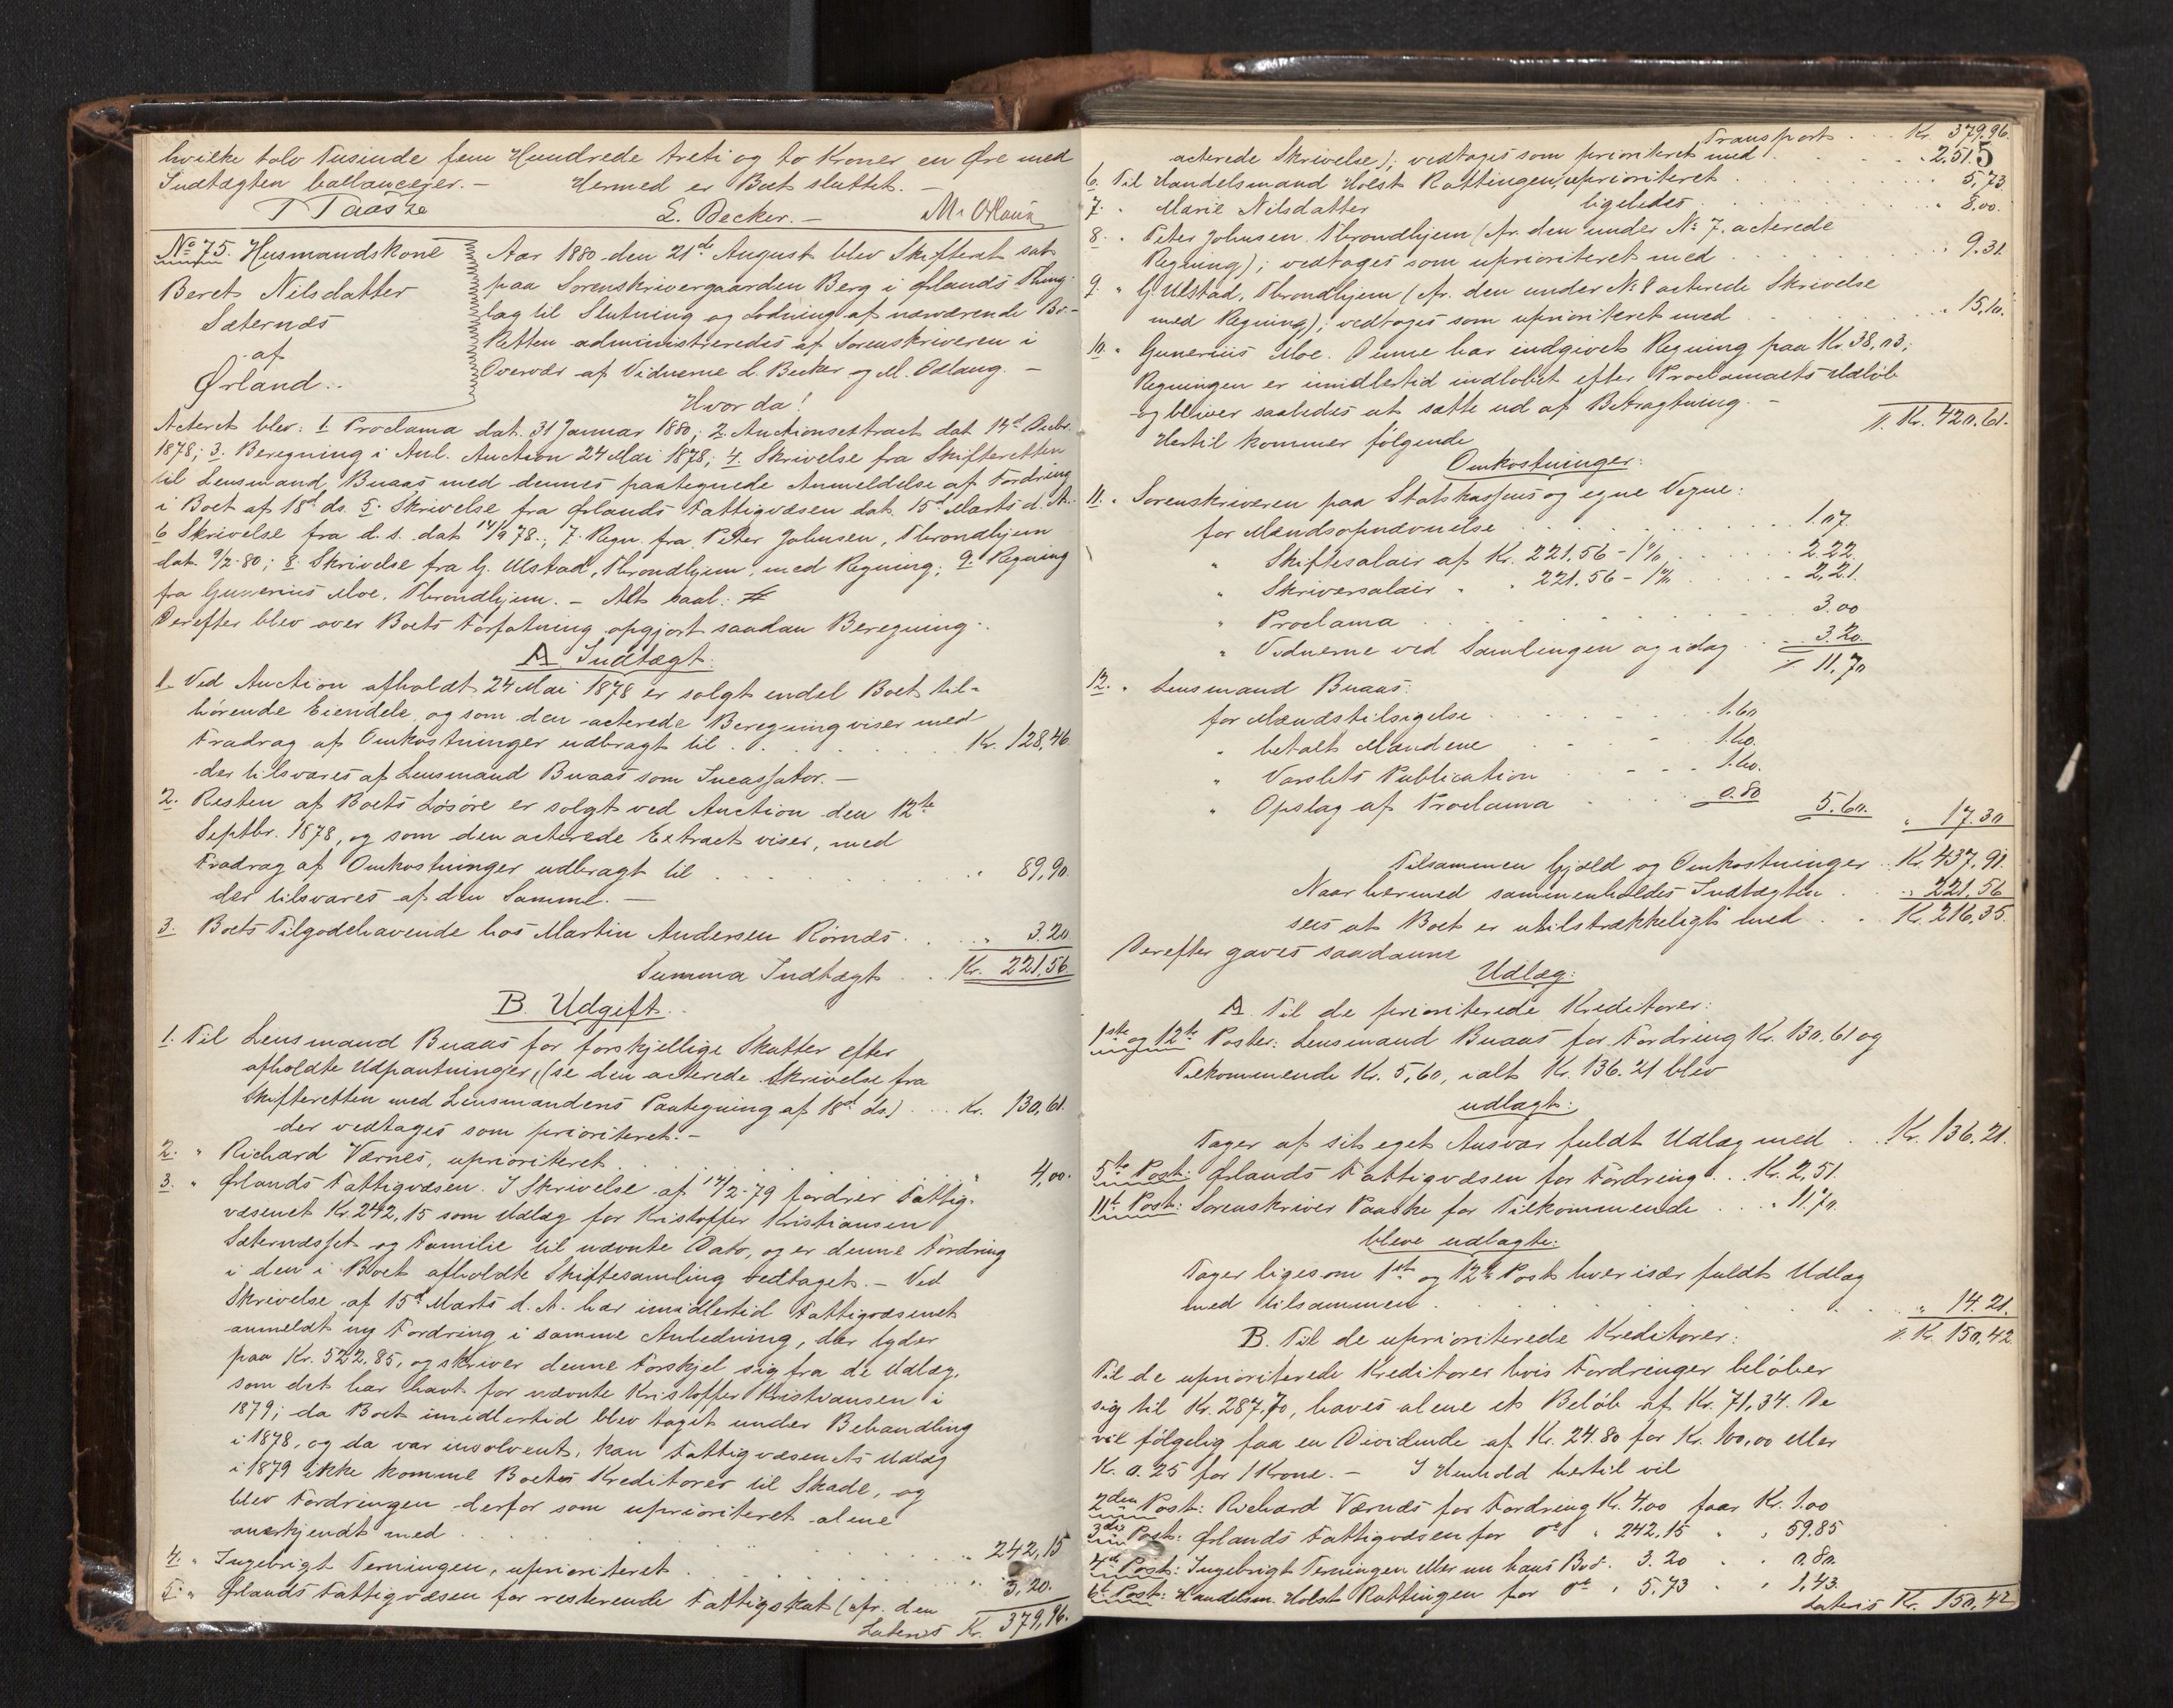 hvilke tolv Tusinde fem Hundrede treti og to Kroner en Øre med
Indtægten ballancerer. — Hermed er Boet sluttet. —
L. Becker. —
No 75. Husmandskone
Beret Nilsdatter
Sæternæs
af
Ørland..
Aar 1880 den 21de August blev Skifteret sat
paa Sorenskrivergaarden Berg i Ørlands Thing-
lag til Slutning og Lodning af nærværende Bo. —
Retten administreredes af Sorenskriveren i
Overvær af Vidnerne L. Becker og M. Odlaug. —
Hvorda!
Acteret blev: 1. Proclama dat. 31 Januar 1880; 2. Auctionsextract dat 14d Decbr.
1878; 3. Beregning i Anl. Auction 24 Mai 1878; 4. Skrivelse fra Skifteretten
til Lensmand Buaas med dennes paategnede Anmeldelse af Fordring
i Boet af 18d ds. 5. Skrivelse fra Ørlands Fattigvæsen dat. 15d Marts d. A.
6 Skrivelse fra d. s. dat 14/9 78.; 7. Regn. fra Peter Johnsen, Throndhjem
dat. 9/2-80; 8. Skrivelse fra G. Ulstad, Throndhjem, med Regning; 9. Regning
fra Gunerius Moe, Throndhjem. — Alt saal:
Derefter blev over Boets Forfatning opgjort saadan Beregning:
A Indtægt:
1. Ved Auction afholdt 24 Mai 1878 er solgt endel Boet til-
hørende Eiendele, og som den acterede Beregning viser med
Fradrag af Omkostninger udbragt til . . . Kr. 128,46.
der tilsvares af Lensmand Buaas som Incassator. —
2. Resten af Boets Løsøre er solgt ved Auction den 12te
Septbr. 1878, og som den acterede Extract viser, med
Fradrag af Omkostninger udbragt til . . . " 89,90.
der tilsvares af den Samme. —
3. Boets Tilgodehavende hos Martin Andersen Rørnæs . . " 3.20
Summa Indtægt . . Kr. 221,56.
B. Udgift.
1. Til Lensmand Buaas for forskjellige Skatter efter
afholdte Udpantninger, (se den acterede Skrivelse fra
Skifteretten med Lensmandens Paategning af 18d ds.) . . . Kr. 130,61.
der vedtages som prioriteret. —
2. " Richard Værnes, uprioriteret . . . " 4,00.
3. " Ørlands Fattigvæsen. I Skrivelse af 14/2-79 fordrer Fattig-
væsenet Kr. 242,15 som Udlæg for Kristoffer Kristiansen
Sæternæsset og Familie til nævnte Dato, og er denne Fordring
i den i Boet afholdte Skiftesamling vedtaget. — Ved
Skrivelse af 15d Marts d. A. har imidlertid Fattigvæsenet
anmeldt ny Fordring i samme Anledning, der lyder
paa Kr. 522,85, og skriver denne Forskjel sig fra de Udlæg,
som det har havt for nævnte Kristoffer Kristiansen i
1879; da Boet imidlertid blev taget under Behandling
i 1878, og da var insolvent, kan Fattigvæsenets Udlæg
i 1879 ikke komme Boets Kreditorer til Skade, og
blev Fordringen derfor som uprioriteret alene
anerkjendt med . . . " 242,15
4. " Ingebrigt Terningen, uprioriteret . . . " 3,20.
5. " Ørlands Fattigvæsen for resterende Fattigskat (cfr. den
Lateris Kr. 379,96.
5
Transport . . . Kr 379,96.
acterede Skrivelse); vedtages som prioriteret med . . . " 2.51.
6. Til Handelsmand Holst Rottingen, uprioriteret . . . 5,73
7. " Marie Nilsdatter ligeledes . . . " 8,00.
8. " Peter Johnsen, Throndhjem (cfr. den under No 7. acterede
Regning); vedtages som uprioriteret med . . . " 9.31.
9. " G. Ulstad, Throndhjem (cfr. den under No 8 acterede Skrivelse
med Regning); vedtages som uprioriteret med . . . " 15,10.
10. " Gunerius Moe. Denne har indgivet Regning paa Kr. 38,03;
Regningen er imidlertid indløbet efter Proclamaets Udløb
og bliver saaledes at sætte ud af Betragtning. — Kr. 420.61.
Hertil kommer følgende
Omkostninger:
11. " Sorenskriveren paa Statskassens og egne Vegne:
for Mændsopnævnelse . . . 1.07.
" Skiftesalair af Kr. 221.56 – 1% . . . 2.22.
" Skriversalair " " 221.56 – 1% . . . 2,21.
" Proclama . . . 3.00
" Vidnerne ved Samlingen og idag . . . 3.20.
11,70
12. " Lensmand Buaas:
for Mændstilsigelse . . . 1.60
" betalt Mændene . . . 1.60.
" Varslets Publication . . . 1.60.
" Opslag af Proclama . . . 0.80 5.60. " 17.30
Tilsammen Gjæld og Omkostninger . . Kr. 437,91.
Naar hermed sammenholdes Indtægten . . . 221,56
sees at Boet er utilstrækkeligt med . . Kr. 216,35.
Derefter gaves saadanne
Udlæg:
A. Til de prioriterede Kreditorer:
1ste og 12te Poster: Lensmand Buaas for Fordring Kr. 130.61 og
Tilkommende Kr. 5,60, ialt Kr. 136.21 blev
udlagt:
Tager af sit eget Ansvar fuldt Udlæg med . . Kr. 136,21.
5te Post: Ørlands Fattigvæsen for Fordring . . Kr. 2,51.
11te Post: Sorenskriver Paaske for Tilkommende . . . 11,70.
bleve udlagte:
Tager ligesom 1ste og 12te Post hver især fuldt Udlæg
med tilsammen . . . " 14.21.
Kr. 150,42.
B. Til de uprioriterede Kreditorer:
Til de uprioriterede Kreditorer hvis Fordringer beløber
sig til Kr. 287,70, haves alene et Beløb af Kr. 71,34. De
vil følgelig faa en Dividende af Kr. 24.80 for Kr. 100,00 eller
Kr. 0.25 for 1 Krone. — I Henhold hertil vil
2den Post: Richard Værnæs for Fordring Kr. 4.00 faar Kr. 1.00
3die Post: Ørlands Fattigvæsen for do " 242.15 " " 59.85
4de Post: Ingebrigt Terningen eller nu hans Bo do. 3.20 " " 0.80.
6te Post: Handelsm. Holst Rottingen for do " 5.73 " " 1,43.
Lateris Kr. 150,42